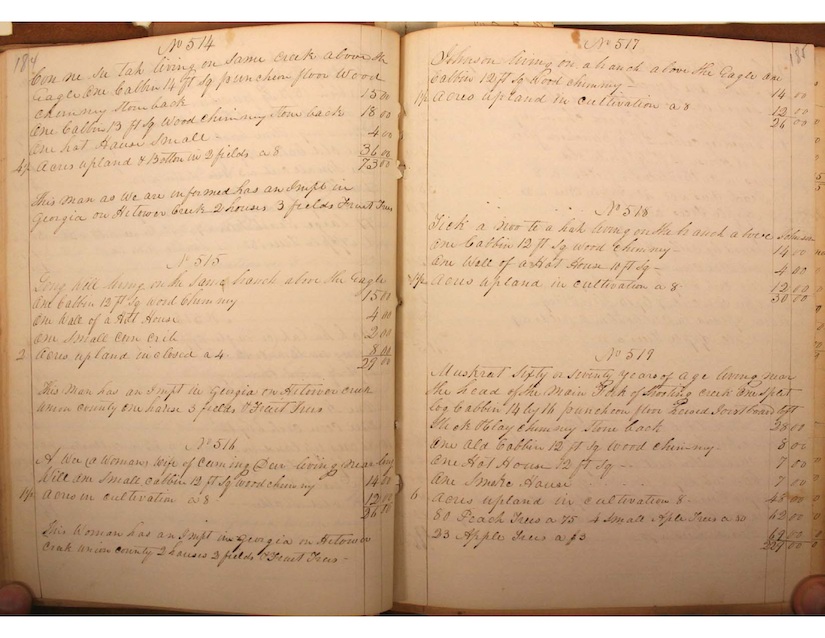 184
No 514
Con ne su tah living on same creek above the
Eagle One Cabbin 14 ft Sq puncheon floor Wood
Chimney Stone back 15 00
One Cabbin 13 ft Sq Wood Chimney Stone back 18 00
One hot House Small - 4 00
4½ Acres upland & Bottom in 2 fields a 8 36 00
73 00
This Man as We are informed has an Impt in
Georgia on Hitower Creek 2 houses 3 fields Fruit Trees
No 515
Long Will living on the same branch above the Eagle
One Cabbin 12 ft Sq wood Chimny 15 00
One Wall of a Hot House 4 00
One Small Corn Crib 2 00
2 Acres upland inclosed a 4 8 00
29 00
This Man has an Impt in Georgia on Hitower creek
Union county One house 3 fields & Fruit Trees
No 516
A Wa Womans Wife of Cuming living near Long
Will One Small Cabbin 12 ft Sq Wood chimny 14 00
1½ Acres in cultivation a 8 12 00
26 00
This Woman has an Impt in Georgia on Hitower
Creek Union County 2 houses 3 fields & Fruit Trees -
185
No 517
Johnson living on a branch above the Eagle One
Cabbin 12 ft Sq Wood Chimny - 14 00
1½ Acres upland in cultivation a 8 12 00
26 00
No 518
living on the branch above Johnson
One Cabbin 12 ft Sq Wood Chimny - 14 00
One Wall of a Hot House 11 ft Sq - 4 00
1½ Acres upland in cultivation a 8 12 00
30 00
No 519
Muskrat Sixty or Seventy Years of Age living near
the head of the Main Fork of Shooting creek One Split
log Cabbin 14 by 16 puncheon floor hewed Joist board loft
Stick & Clay Chimny Stone back 38 00
One Old Cabbin 12 ft Sq Wood chimny - 8 00
One Hot House 12 ft Sq - - 7 00
One Smoke House 7 00
6 Acres upland in cultivation 8 - 48 00
80 Peach Trees a 75 4 Small Aple Trees a 50 62 00
23 Apple Trees a $3 69 00